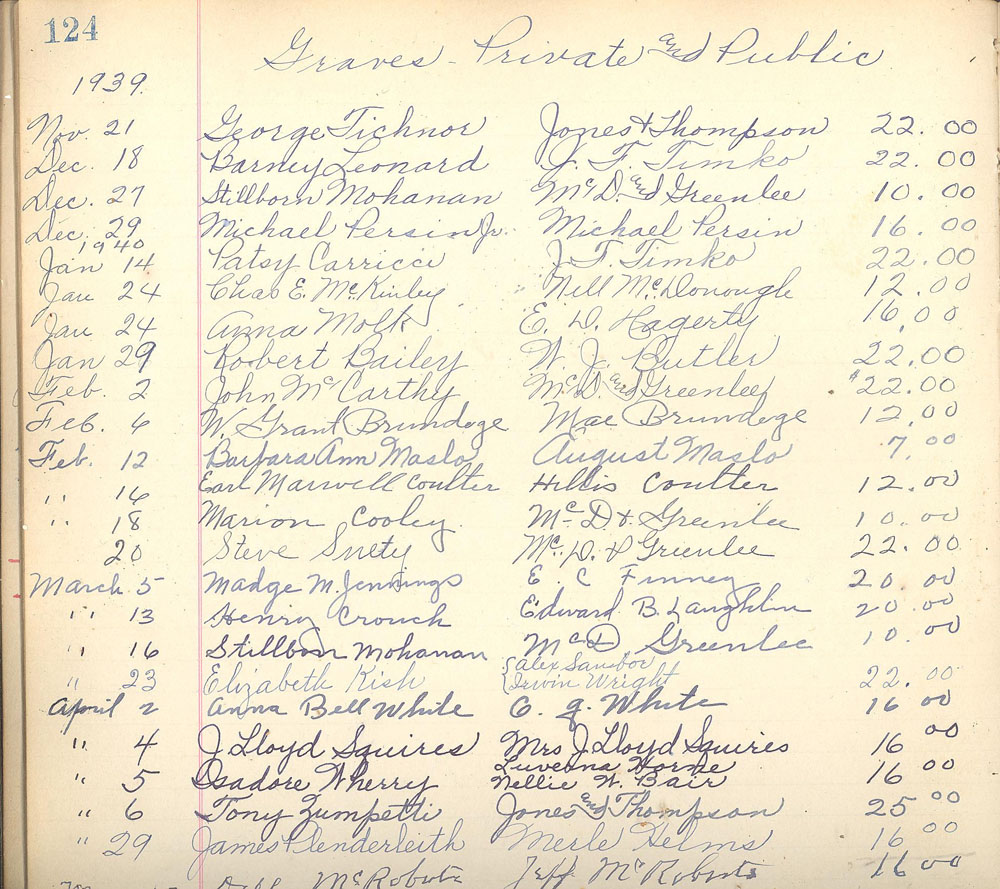 124
Graves - Private and Public
1939.
Nov. 21 George Tichnor Jones & Thompson 22.00
Dec. 18 Barney Leonard J. F. Timko 22.00
Dec. 27 Stillborn Mohanan McD. and Greenlee 10.00
Dec. 29 Michael Persin Jr. Michael Persin 16.00
1940
Jan 14 Patsy Carricci J. F. Timko 22.00
Jan 24 Chas E. McKinley " Nell McDonough 12.00
Jan 24 Anna Molk E. D. Hagerty 16.00
Jan 29 Robert Bailey W. J. Butler 22.00
Feb. 2 John McCarthy McD. and Greenlee $22.00
Feb. 6 W. Grant Brundage Mae Brundage 12.00
Feb. 12 Barbara Ann Maslo August Maslo 7.00
" 14 Earl Maxwell Coulter Hillis Coulter 12.00
" 18 Marion Cooley McD & Greenlee 10.00
20 Steve McD. & Greenlee 22.00
March 5 Madge M. Jennings E. C Finney 20 00
" 13 Henry Crouch Edward B Laughlin 20.00
" 16 Stillborn Mohanan McD Greenlee 10.00
" 23 Elizabeth Kish {Alex Sandor
{Irwin Wright 22.00
April 2 Anna Bell White C. G. White 16 00
" 4 J Lloyd Squires Mrs J Lloyd Squires 16 00
Luverna Horne
" 5 Isadore Wherry Nellie W. Bair 16 00
" 6 Tony Zumpetti Jones and Thompson 25 00
" 29 James Plenderleith Merle Helms 16 00
McRoberts Jeff McRoberts 16 00